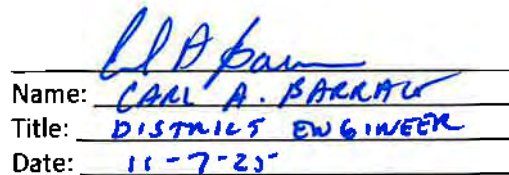 Name: CARL A.
Title: DISTRICT ENGINEER
Date: 11-7-25